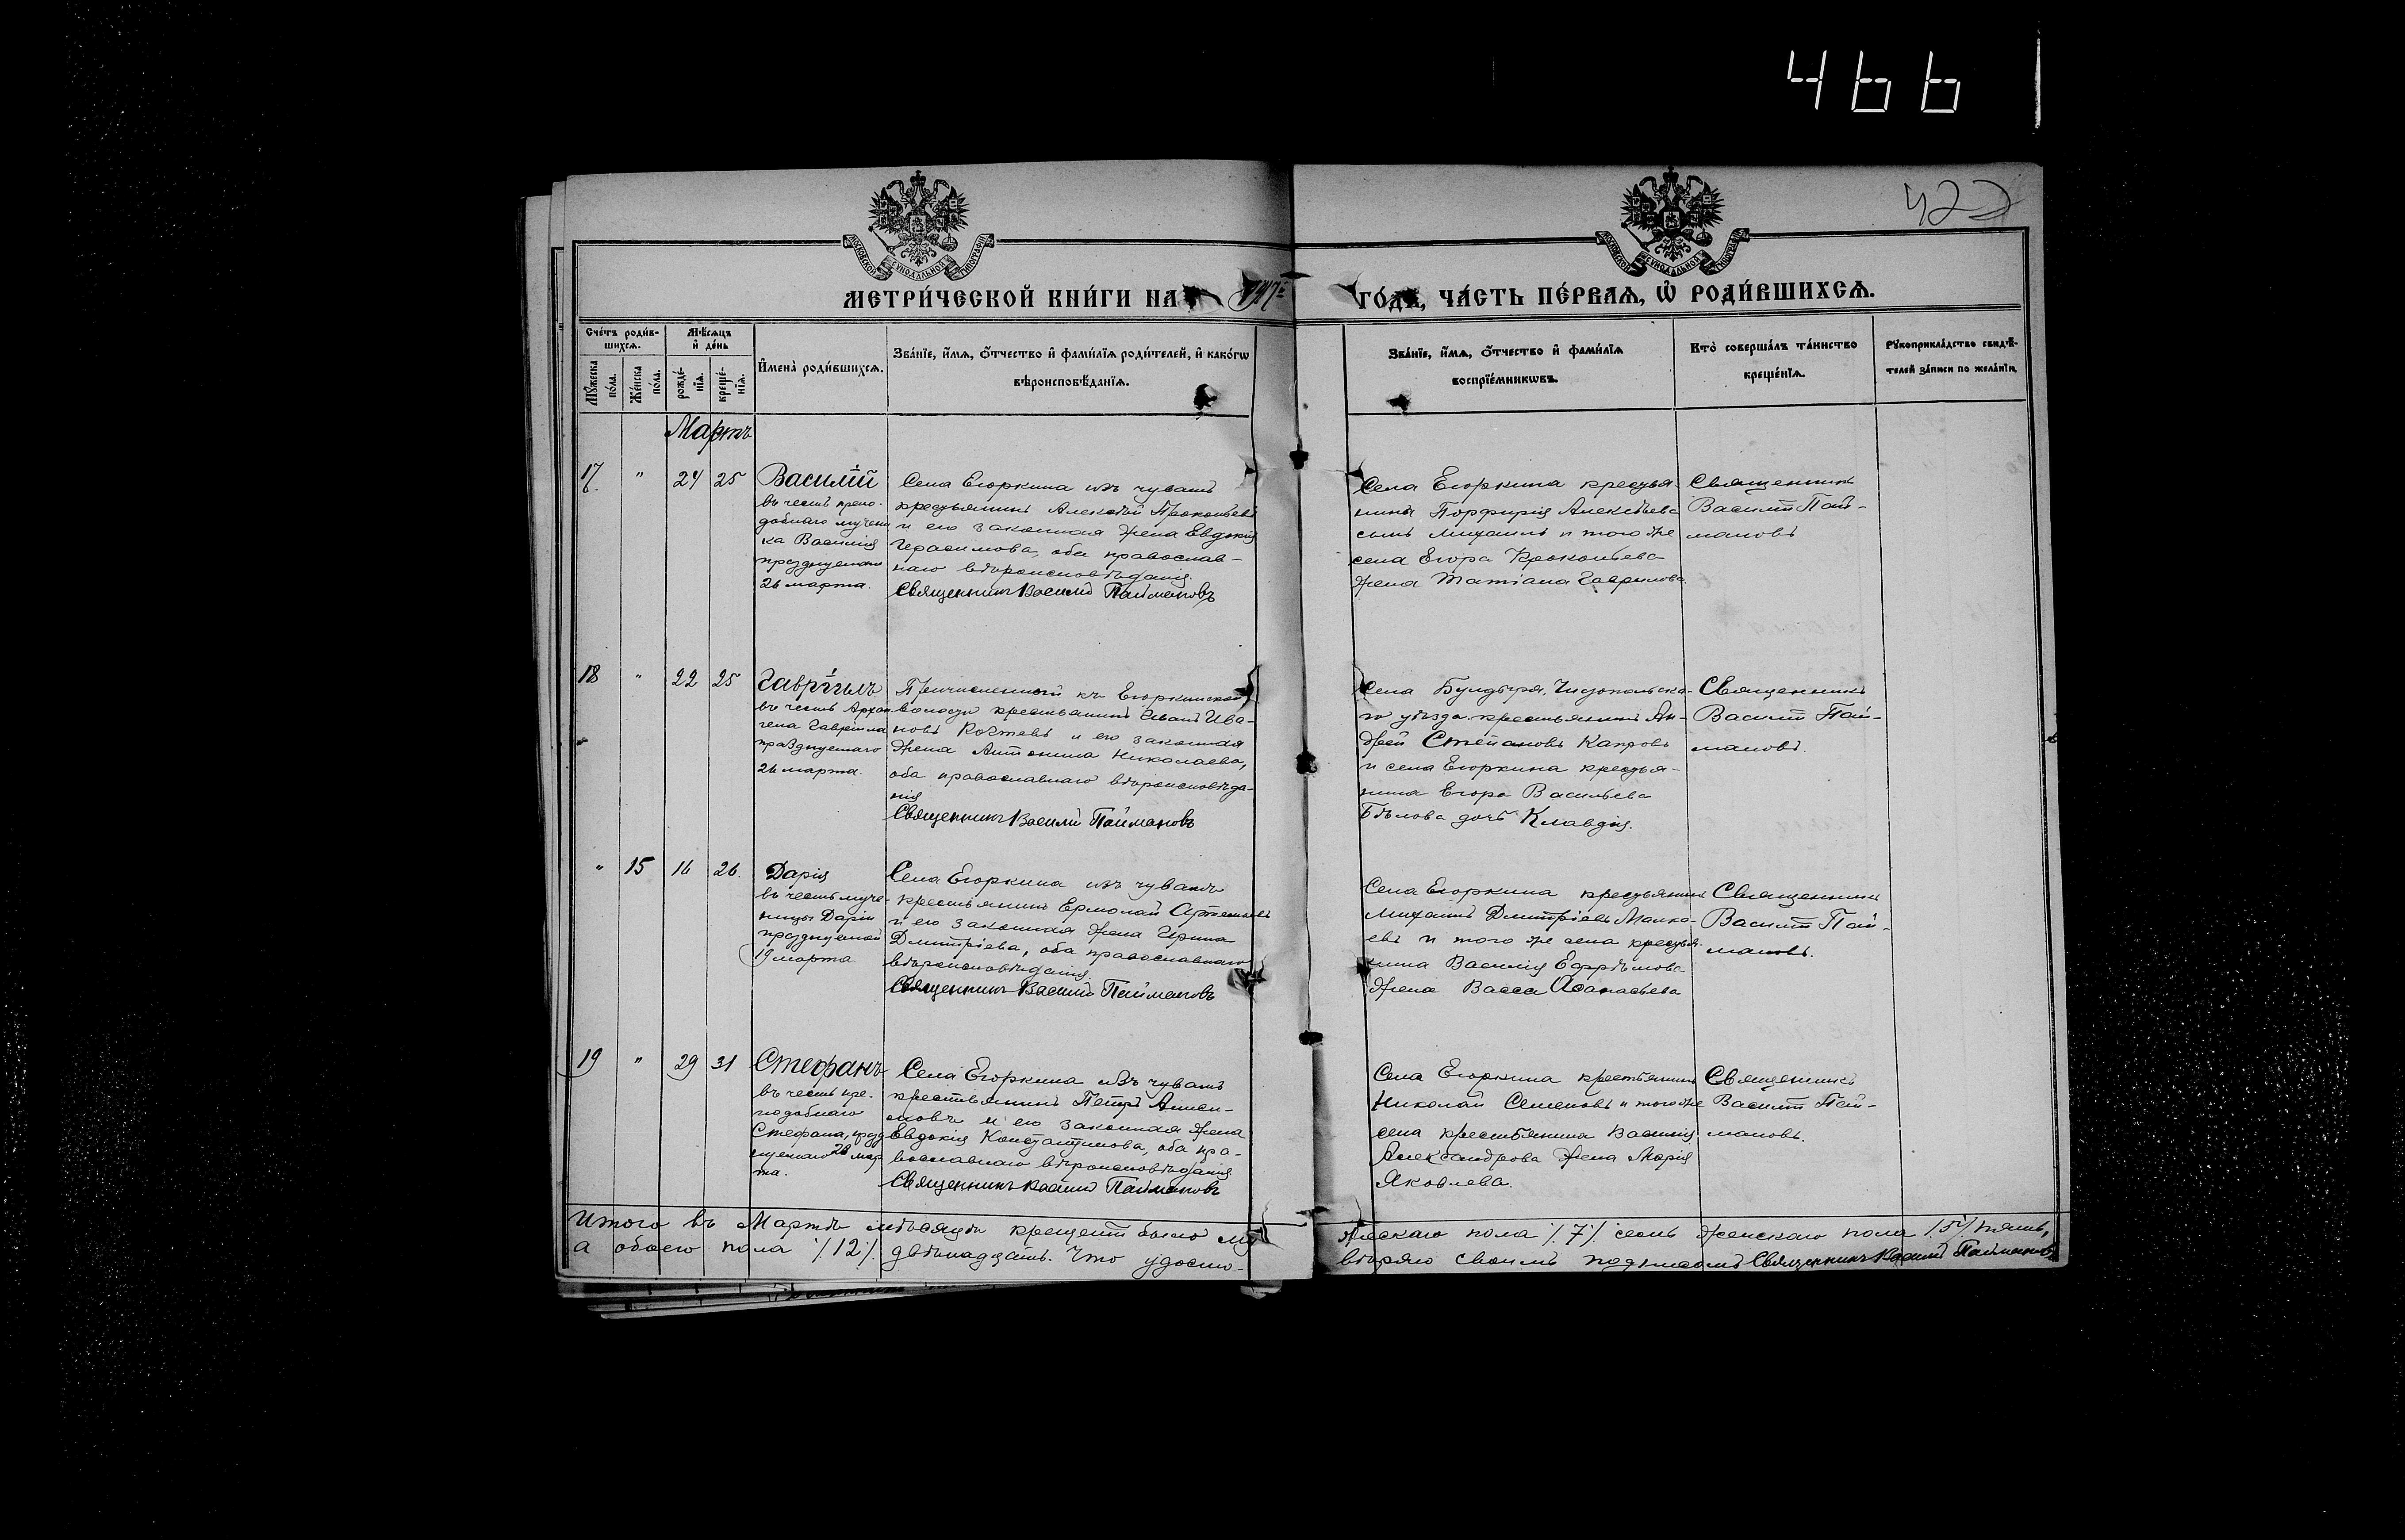 466
422
МОСКОВСКОЙ СѴНОДАЛЬНОЙ ТИПОГРАФІИ
МОСКОВСКОЙ СѴНОДАЛЬНОЙ ТИПОГРАФІИ
МЕТРИ́ЧЕСКОЙ КНИ́ГИ НА
ГО́ДЪ, ЧА́СТЬ ПЕ́РВАѦ, Ѽ РОДИ́ВШИХСѦ.
Сче́тъ роди́в-
шихсѧ.
Мꙋ́жеска
по́ла.
Же́нска
по́ла.
Мѣ́сѧцъ
и҆ де́нь
рожде́-
нїѧ.
креще́-
нїѧ.
И҆мена̀ роди́вшихсѧ.
Зва́нїе, и҆́мѧ, ѻ҆́тчество и҆ фами́лїѧ роди́телей, и҆ како́гѡ
вѣроисповѣ́данїѧ.
Зва́нїе, и҆́мѧ, ѻ҆́тчество и҆ фами́лїѧ
воспрїе́мникѡвъ.
Кто̀ соверша́лъ та́инство
креще́нїѧ.
Рꙋкоприкла́дство свидѣ́-
телей за́писи по жела́нїю.
Мартъ
17 " 24 25
Василій
въ честь препо-
добнаго мучени
ка Василія
празднуемаго
26 марта.
Села Егоркина изъ чувашъ
крестьянинъ Алексѣй Прокопьевъ
и его законная жена Евдокія
Герасимова, оба православ-
наго вѣроисповѣданія.
Священникъ Василій Паймановъ
Села Егоркина крестья-
нина Порфирія Алексѣева
сынъ Михаилъ и того же
села Егора Прокопьева
жена Татіана Гаврилова.
Священникъ
Василій Пай-
мановъ
18 " 22 25
Гавріилъ
въ честь Архан
гела Гавріила
празднуемаго
26 марта.
Причисленный къ Егоркинской
волости крестьянинъ Иванъ Ива-
новъ и его законная
жена Антонина Николаева,
оба православнаго вѣроисповѣда-
нія
Священникъ Василій Паймановъ
Села Булдыря, Чистопольска-
го уѣзда крестьянинъ Ан-
дрей Степановъ Капровъ
и села Егоркина крестья-
нина Егора Васильева
Бѣлова дочь Клавдія.
Священникъ
Василій Пай-
мановъ.
" 15 16 26.
Дарія
въ честь муче-
ницы Даріи
празднуемой
19 марта
Села Егоркина изъ чувашъ
крестьянинъ Ермолай Артемьевъ
и его законная жена Ирина
Дмитріева, оба православнаго
вѣроисповѣданія.
Священникъ Василій Паймановъ
Села Егоркина крестьянинъ
Михаилъ Дмитріевъ
и того же села крестья-
нина Василія Ефрѣмова
жена Васса Аѳанасьева
Священникъ
Василій Пай-
мановъ.
19 " 29 31
Стефанъ
въ честь пре-
подобнаго
Стефана, празд
нуемаго 28 мар
та.
Села Егоркина изъ чувашъ
крестьянинъ Петръ
и его законная жена
Евдокія Константинова, оба пра-
вославнаго вѣроисповѣданія
Священникъ Василій Паймановъ
Села Егоркина крестьянинъ
Николай Семеновъ и того же
села крестьянина Василія
Александрова жена Марія
Яковлева.
Священникъ
Василій Пай-
мановъ.
Итого въ Мартѣ мѣсяцѣ крещено было му
жескаго пола /7/ семь женскаго пола /5/ пять,
а обоего пола /12/ двѣнадцать. Что удосто-
вѣряю своимъ подписомъ Священникъ Василій Паймановъ